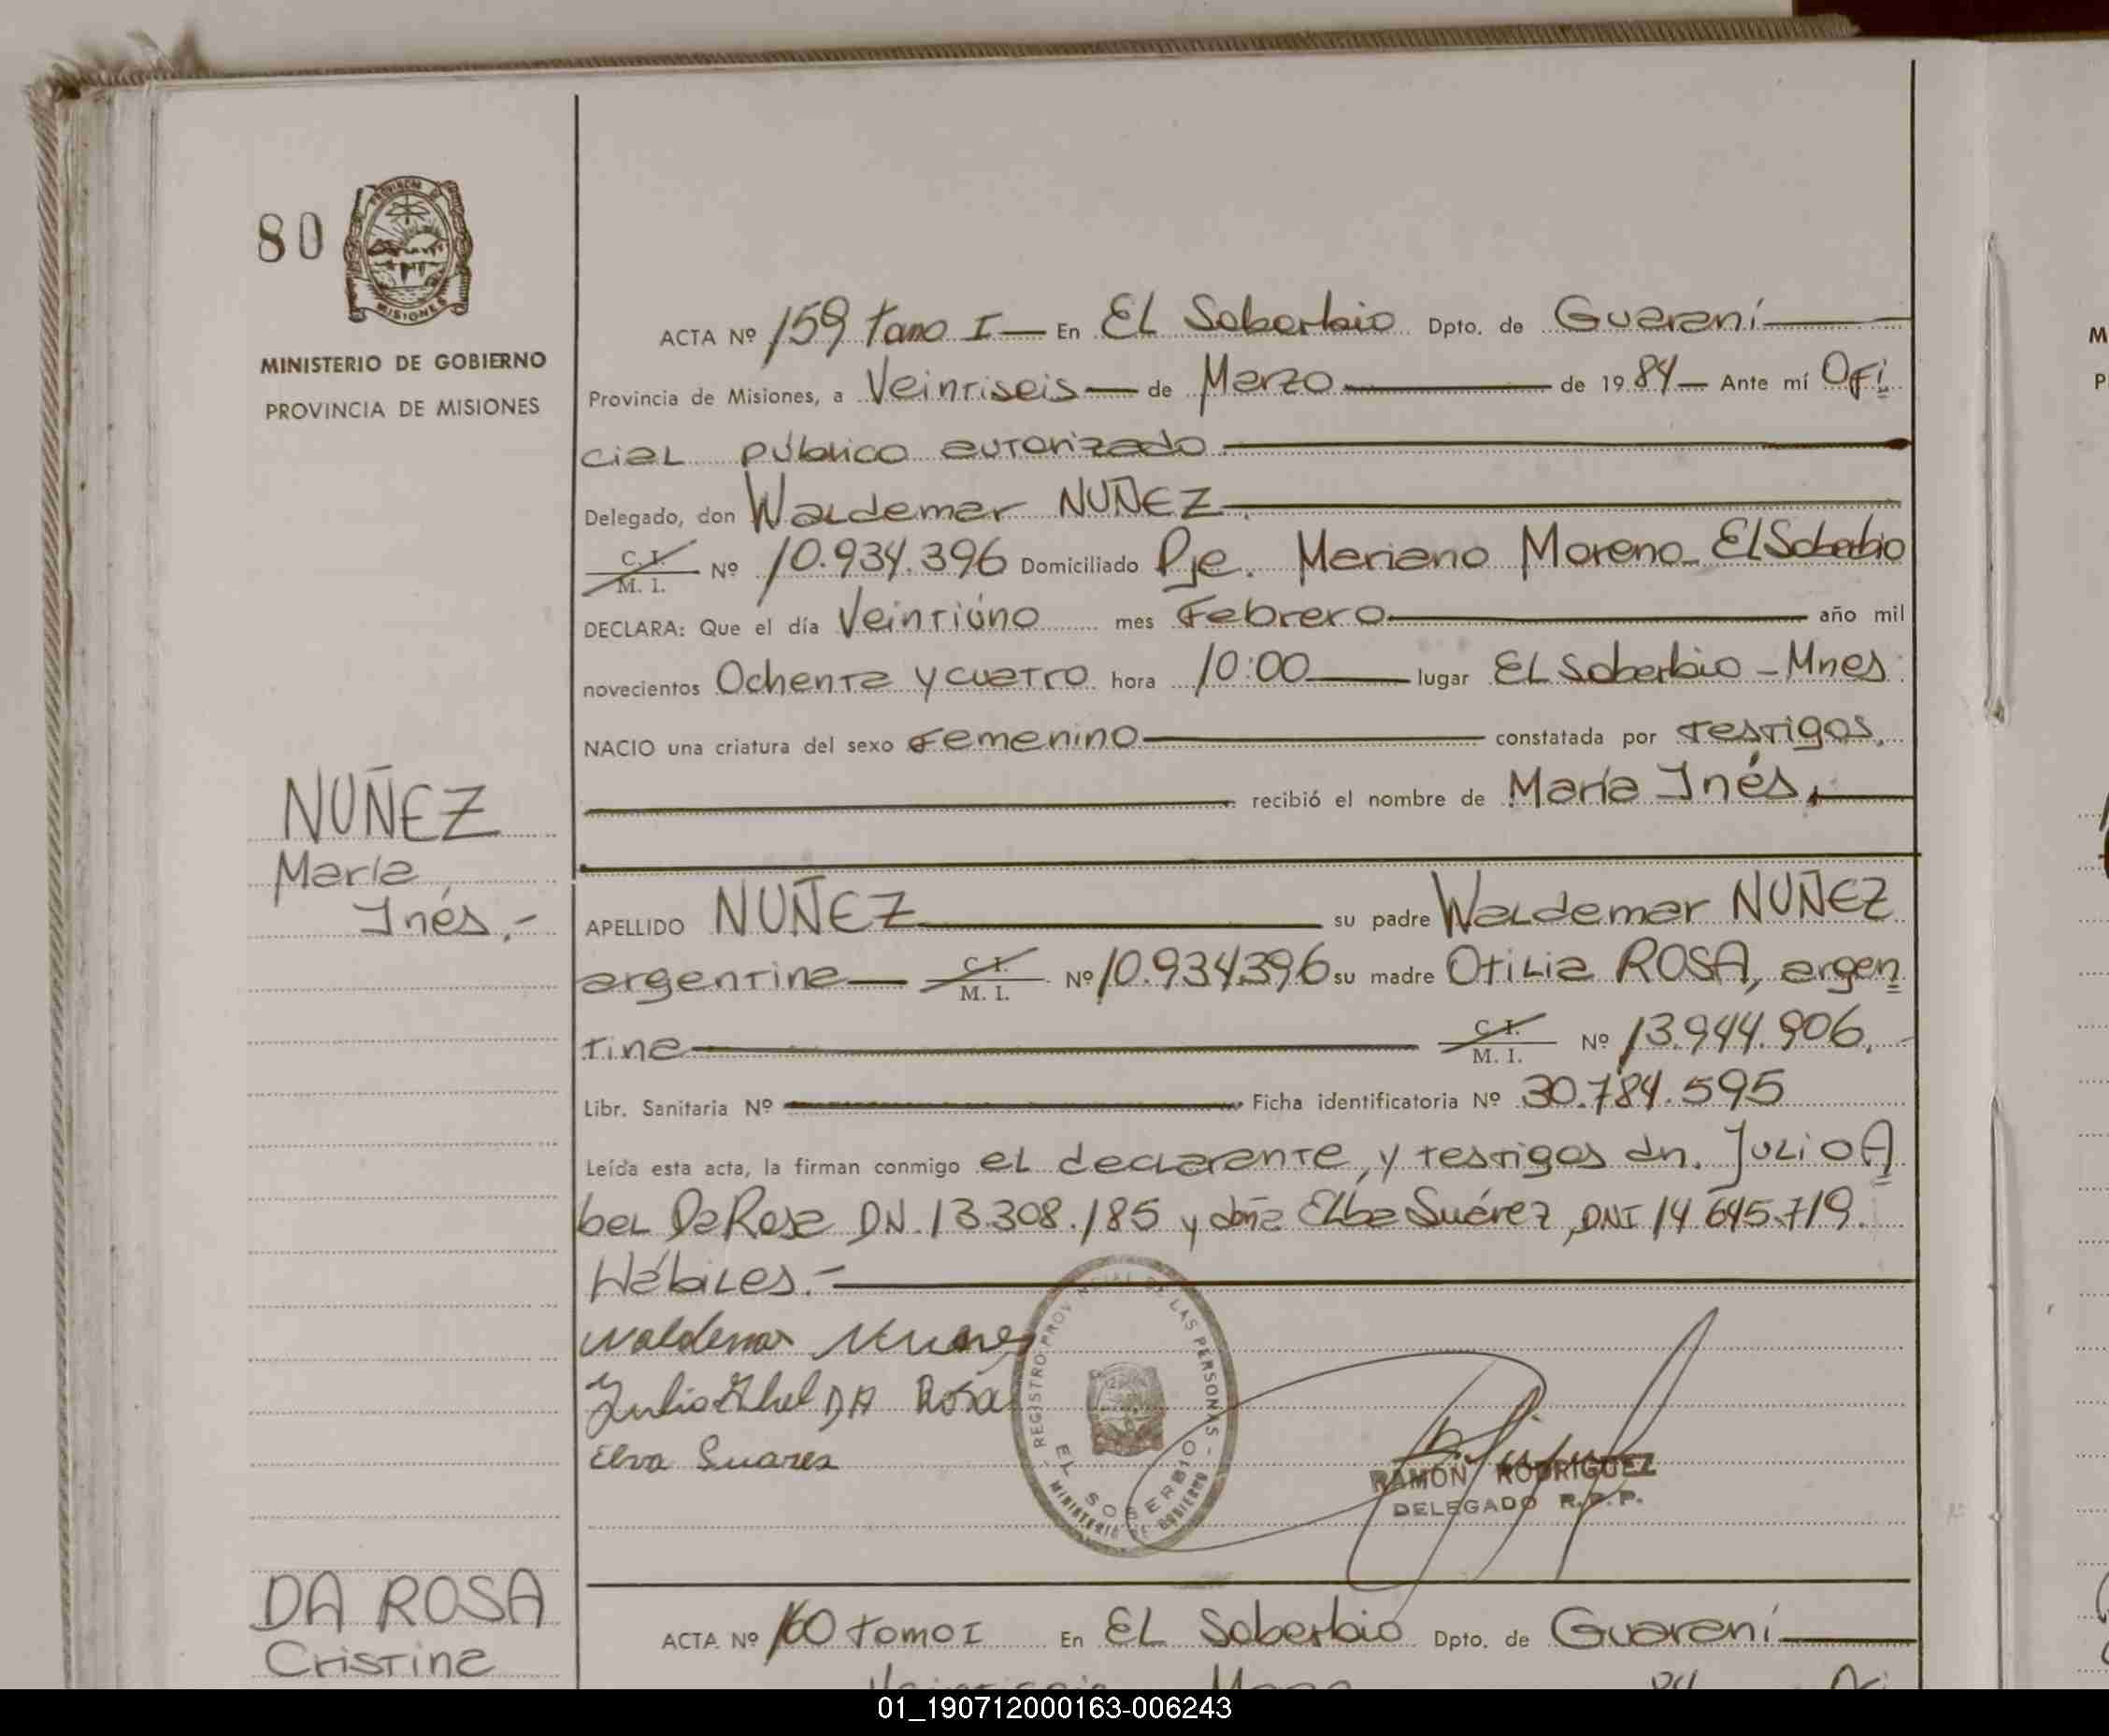 80
PROVINCIA DE
MISIONES
MINISTERIO DE GOBIERNO
PROVINCIA DE MISIONES
NUÑEZ
María
Inés.-
ACTA Nº 159 tomo I — En EL Soberbio Dpto. de Guaraní
Provincia de Misiones, a Veintiseis — de Marzo de 1984 — Ante mí Ofi
cial público autorizado
Delegado, don Waldemar NUÑEZ.
C. I.
M. I. Nº 10.934.396 Domiciliado Pje. Mariano Moreno - El Soberbio
DECLARA: Que el día Veintiúno mes Febrero año mil
novecientos Ochenta y cuatro hora 10:00 lugar EL Soberbio - Mnes.
NACIO una criatura del sexo Femenino constatada por testigos,
recibió el nombre de María Inés,
APELLIDO NUÑEZ su padre Waldemar NUÑEZ
argentina — C. I. M. I. Nº 10.934396 su madre Otilia ROSA, argen
tina C. I. M. I. Nº 13.944.906,
Libr. Sanitaria Nº Ficha identificatoria Nº 30.784.595
Leída esta acta, la firman conmigo el declarante, y testigos dn. Julio A
bel Da Rosa DN. 13.308.185 y doña Elba Suárez, DNI 14.645.719.
Hábiles.-
Waldemar Nunez
Julio Abel DA Rosa
Elva Suares
REGISTRO PROVINCIAL DE LAS PERSONAS -
EL SOBERBIO
MINISTERIO DE GOBIERNO
RAMON RODRIGUEZ
DELEGADO R.P.P.
DA ROSA
Cristina
ACTA Nº 160 tomo I En EL Soberbio Dpto. de Guaraní
01_190712000163-006243